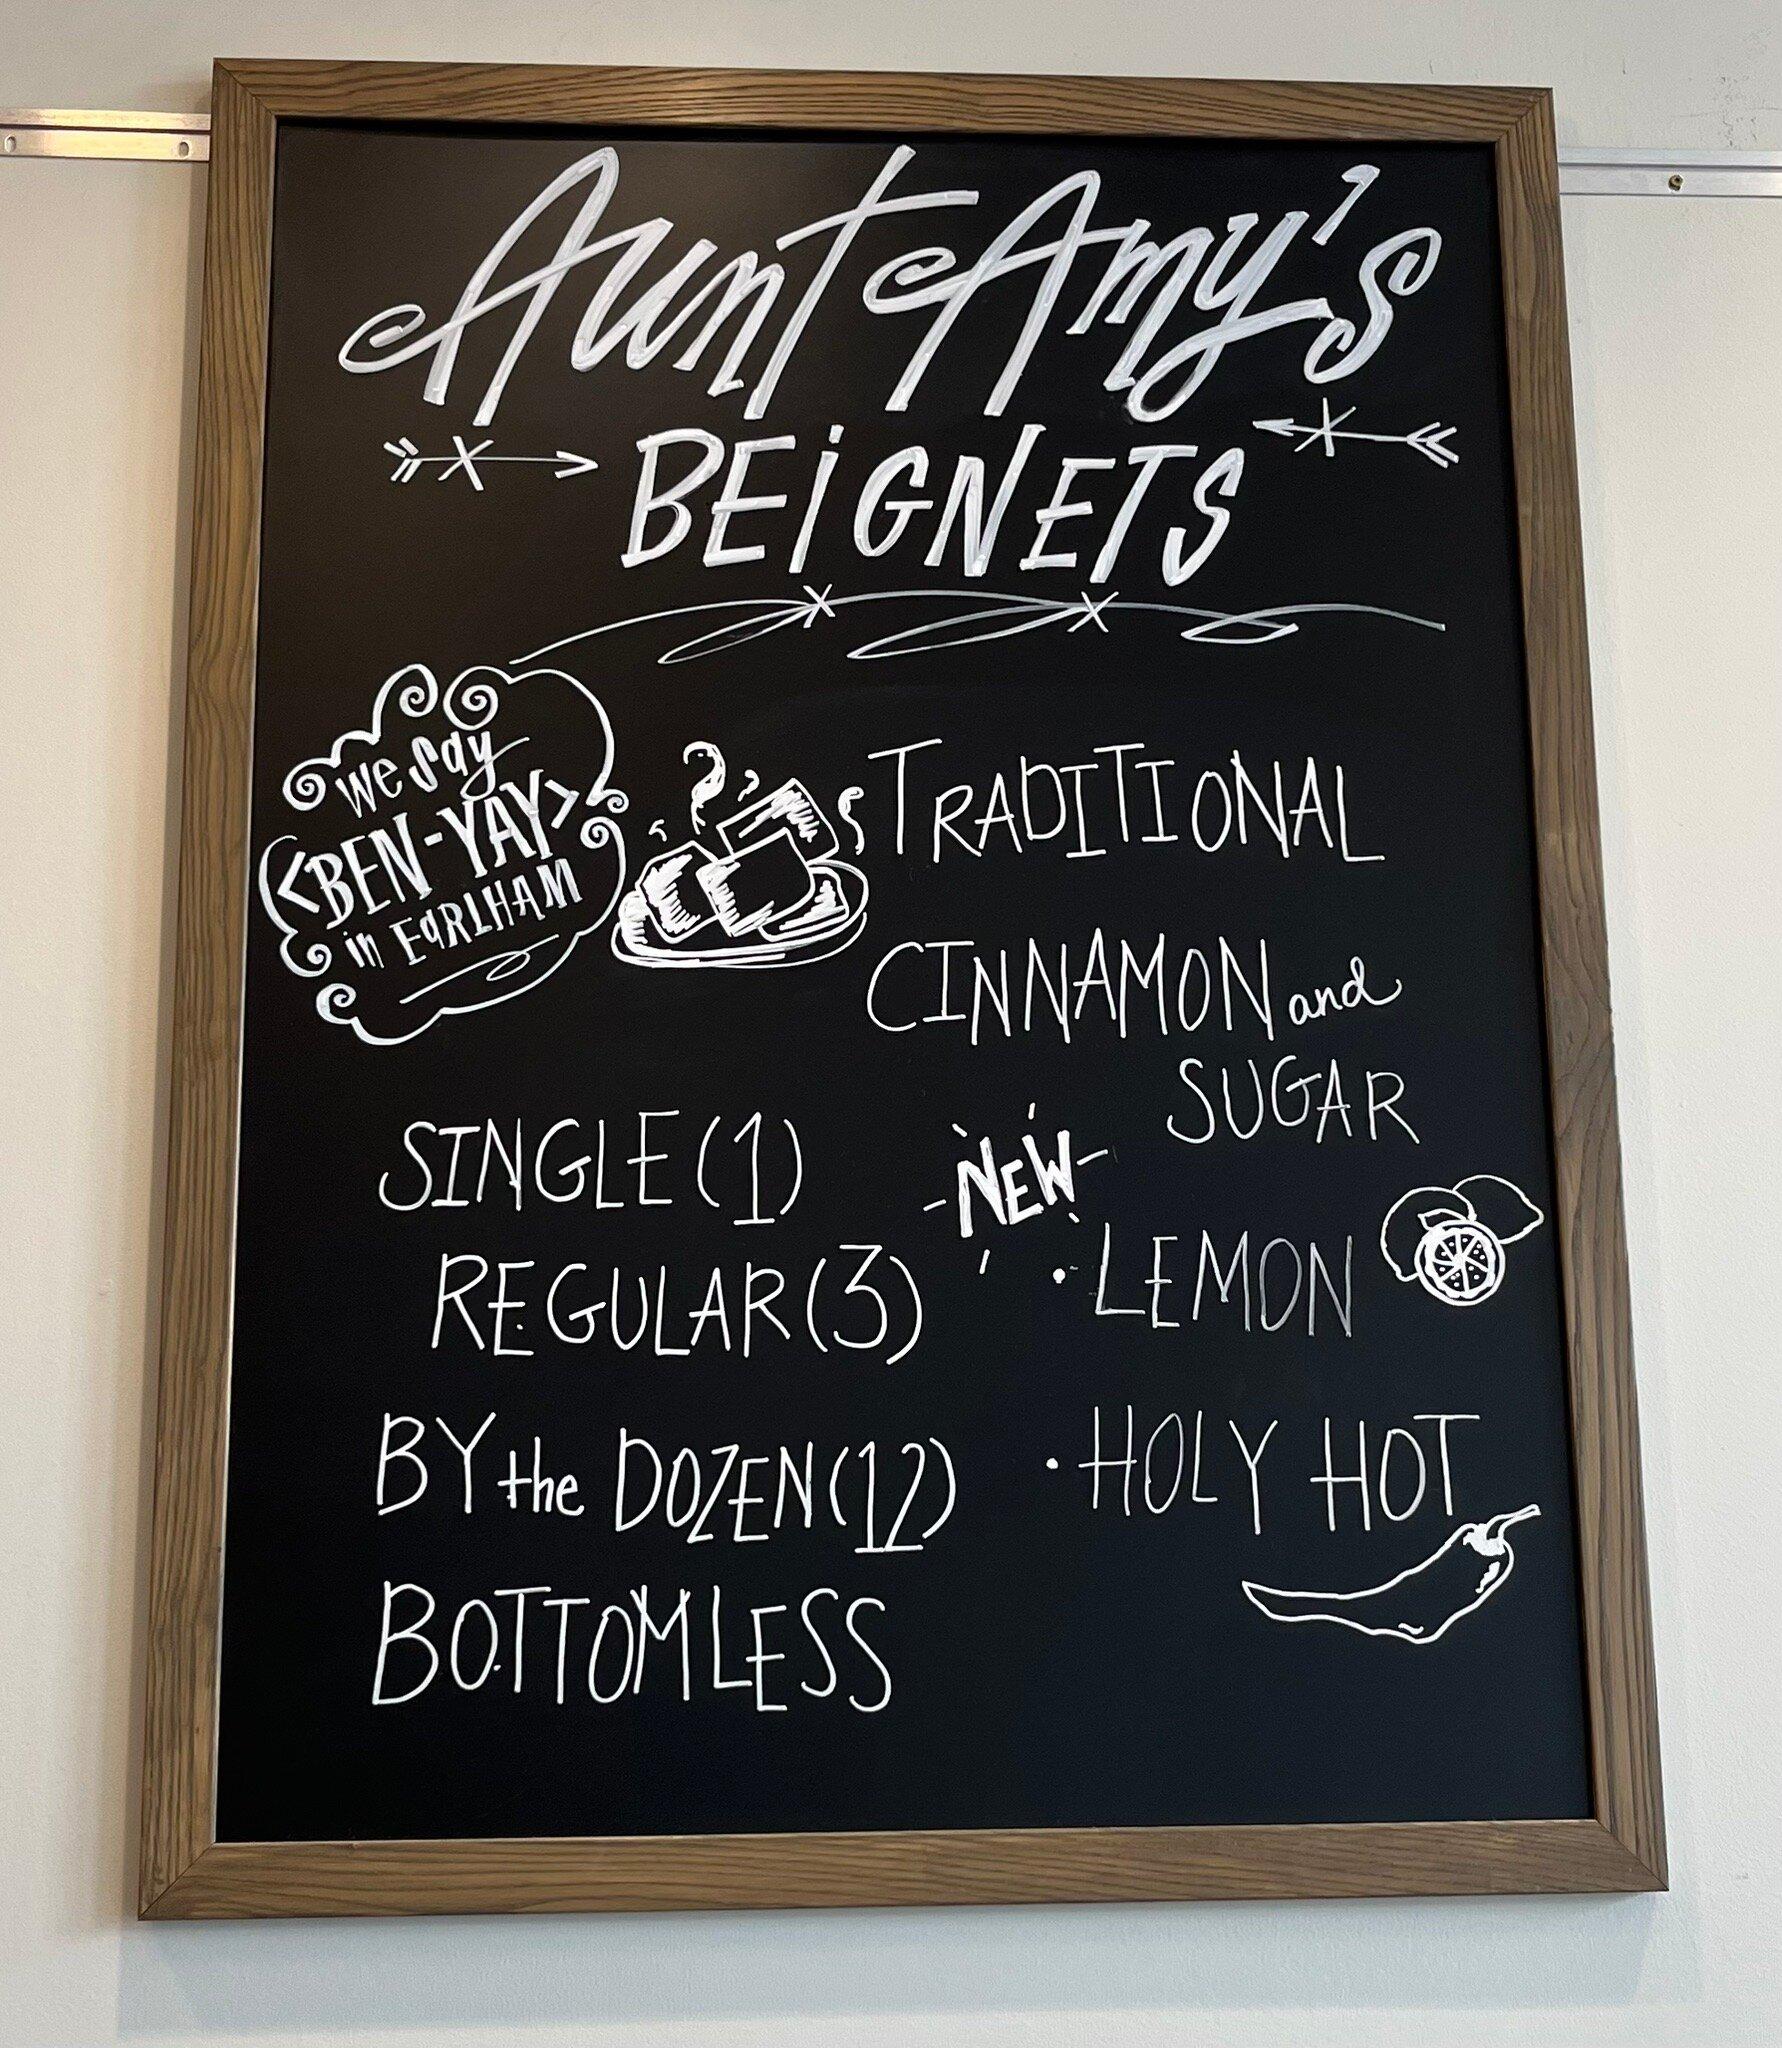 Aunt Amy's
BEIGNETS
we say
<BEN-YAY>
in EARLHAM
TRADITIONAL
CINNAMON and
SUGAR
NEW
· LEMON
· HOLY HOT
SINGLE (1)
REGULAR (3)
BY the DOZEN (12)
BOTTOMLESS